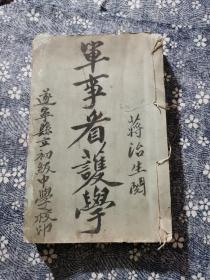 軍事看護學
蔣治生閱
遂寧縣立初級中學校印